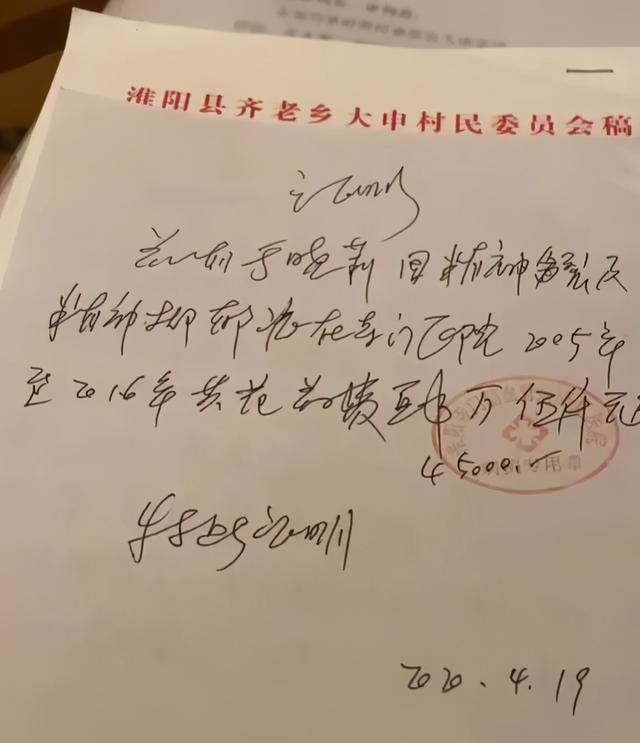 淮阳县齐老乡大申村民委员会稿
证明
兹有于晓莉因精神分裂及
精神抑郁症在专门医院2005年
至2016年共花药费肆万伍仟元
45000.-
特此证明
2020.4.19